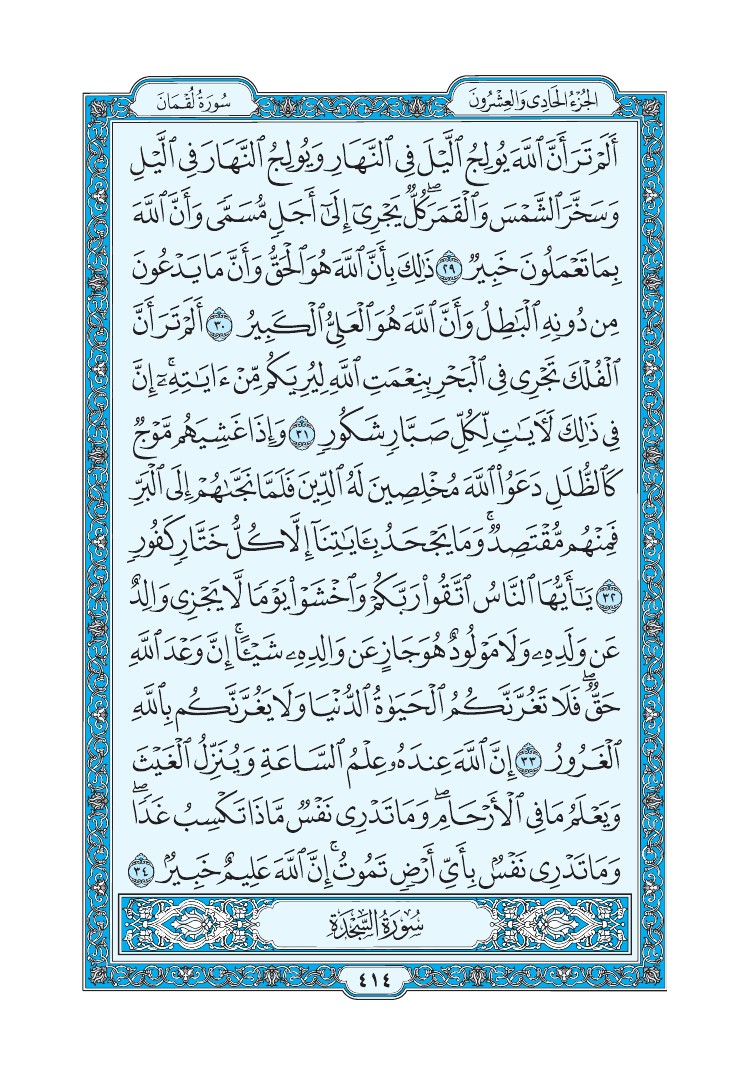 الجُزْءُ الحَادِي وَالعِشْرُونَ
سُورَةُ لُقْمَانَ
أَلَمْ تَرَ أَنَّ ٱللَّهَ يُولِجُ ٱلَّيْلَ فِي ٱلنَّهَارِ وَيُولِجُ ٱلنَّهَارَ فِي ٱلَّيْلِ
وَسَخَّرَ ٱلشَّمْسَ وَٱلْقَمَرَۖ كُلٌّ يَجْرِيٓ إِلَىٰٓ أَجَلٍ مُّسَمًّى وَأَنَّ ٱللَّهَ
بِمَا تَعْمَلُونَ خَبِيرٌ ٢٩ ذَٰلِكَ بِأَنَّ ٱللَّهَ هُوَ ٱلْحَقُّ وَأَنَّ مَا يَدْعُونَ
مِن دُونِهِ ٱلْبَٰطِلُ وَأَنَّ ٱللَّهَ هُوَ ٱلْعَلِيُّ ٱلْكَبِيرُ ٣٠ أَلَمْ تَرَ أَنَّ
ٱلْفُلْكَ تَجْرِي فِي ٱلْبَحْرِ بِنِعْمَتِ ٱللَّهِ لِيُرِيَكُم مِّنْ ءَايَٰتِهِۦٓۚ إِنَّ
فِي ذَٰلِكَ لَأٓيَٰتٍ لِّكُلِّ صَبَّارٍ شَكُورٍ ٣١ وَإِذَا غَشِيَهُم مَّوْجٌ
كَٱلظُّلَلِ دَعَوُاْ ٱللَّهَ مُخْلِصِينَ لَهُ ٱلدِّينَ فَلَمَّا نَجَّىٰهُمْ إِلَى ٱلْبَرِّ
فَمِنْهُم مُّقْتَصِدٌۚ وَمَا يَجْحَدُ بِـَٔايَٰتِنَآ إِلَّا كُلُّ خَتَّارٍ كَفُورٍ
٣٢ يَٰٓأَيُّهَا ٱلنَّاسُ ٱتَّقُواْ رَبَّكُمْ وَٱخْشَوْاْ يَوْمًا لَّا يَجْزِي وَالِدٌ
عَن وَلَدِهِۦ وَلَا مَوْلُودٌ هُوَ جَازٍ عَن وَالِدِهِۦ شَيْـًٔاۚ إِنَّ وَعْدَ ٱللَّهِ
حَقٌّۖ فَلَا تَغُرَّنَّكُمُ ٱلْحَيَوٰةُ ٱلدُّنْيَا وَلَا يَغُرَّنَّكُم بِٱللَّهِ
ٱلْغَرُورُ ٣٣ إِنَّ ٱللَّهَ عِندَهُۥ عِلْمُ ٱلسَّاعَةِ وَيُنَزِّلُ ٱلْغَيْثَ
وَيَعْلَمُ مَا فِي ٱلْأَرْحَامِۖ وَمَا تَدْرِي نَفْسٌ مَّاذَا تَكْسِبُ غَدًاۖ
وَمَا تَدْرِي نَفْسٌۢ بِأَيِّ أَرْضٍ تَمُوتُۚ إِنَّ ٱللَّهَ عَلِيمٌ خَبِيرٌۢ ٣٤
سُورَةُ السَّجْدَةِ
٤١٤